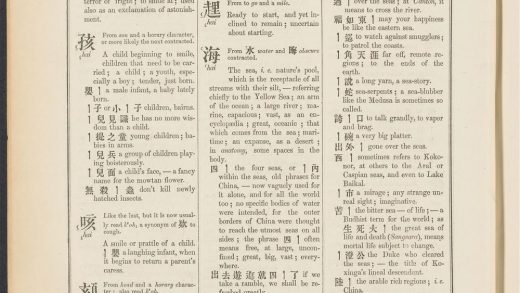 terror or fright; to smite at; used
also as an exclamation of astonish-
ment.
孩
hai
From son and a horary character,
or more likely the next contracted.
A child beginning to smile,
children that need to be car-
ried; a child; a youth, espe-
cially a boy; tender, just born.
嬰〡 a male infant, a baby lately
born.
〡子 or 小〡子 children, bairns.
〡兒見識 he has no more wis-
dom than a child.
〡提之童 young children; ba-
bies in arms.
〡兒兵 a group of children play-
ing boisterously.
〡兒面 a child's face, — a fancy
name for the mowtan flower.
無殺〡蟲 don't kill newly
hatched insects.
咳
hai
Like the last, but it is now usual-
ly read k'oh; a synonym of 欬 to
cough.
A smile or prattle of a child.
〡嬰 a laughing infant, when
it begins to return a parent's
caress.
From head and a horary charac-
ter; also read k'oh
hai
From to go and a mile.
Ready to start, and yet in-
clined to remain; uncertain
about starting.
海
hai
From 水 water and 晦 obscure
contracted.
The sea, i.e. nature's pool,
which is the receptacle of all
streams with their silt, — referring
chiefly to the Yellow Sea; an arm
of the ocean; a large river; ma-
rine, capacious; vast, as an en-
cyclopædia; great, oceanic; that
which comes from the sea; mari-
time; an expanse, as a desert;
in anatomy, some spaces in the
body.
四〡 the four seas, or 〡內
within the seas, old phrases for
China, — now vaguely used for
it alone, and for all the world
too; no specific bodies of water
were intended, for the outer
borders of China were thought
to reach the utmost seas on all
sides; the phrase 四〡 often
means free, at large, uncon-
fined; great, big, vast; every-
where.
出去遊逛就四〡了 if we
take a ramble, we shall be re-
freshed greatly.
過〡 over the seas; at Canton, it
means to cross the river.
福如東〡 may your happiness
be like the eastern sea.
巡〡 to watch against smugglers;
to patrol the coasts.
〡角天涯 far off, remote regi-
ons; to the ends of the
earth.
〡說 a long yarn, a sea-story.
〡蛇 sea-serpents; a sea-blubber
like the Medusa is sometimes so
called.
誇〡口 to talk grandly, to vapor
and brag.
〡碗 a very big platter.
出〡外 gone over the seas.
西〡 sometimes refers to Koko-
nor, at others to the Aral or
Caspian seas, and even to Lake
Baikal.
〡市 a mirage; any strange un-
real sight; imaginative.
苦〡 the bitter sea — of life; — a
Budhist term for the world; as
生死〡 the great sea of
life and death (Sangsara), means
mortal life subject to change.
〡澄公 the Duke who cleared
the seas; — the title of Ko-
xinga's lineal descendant.
陸〡 the arable rich regions; i.e.
China.